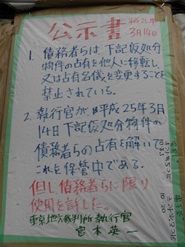 公示書
1. 債務者らは下記仮処分
物件の占有を他人に移転し
又は占有名儀を変更することを
禁止されている。
2. 執行官が平成25年3月
14日下記仮処分物件の
債務者らの占有を解いて
これを保管中である。
但し債務者らに限り
使用を許した。
東京地方裁判所執行官
宮本英一